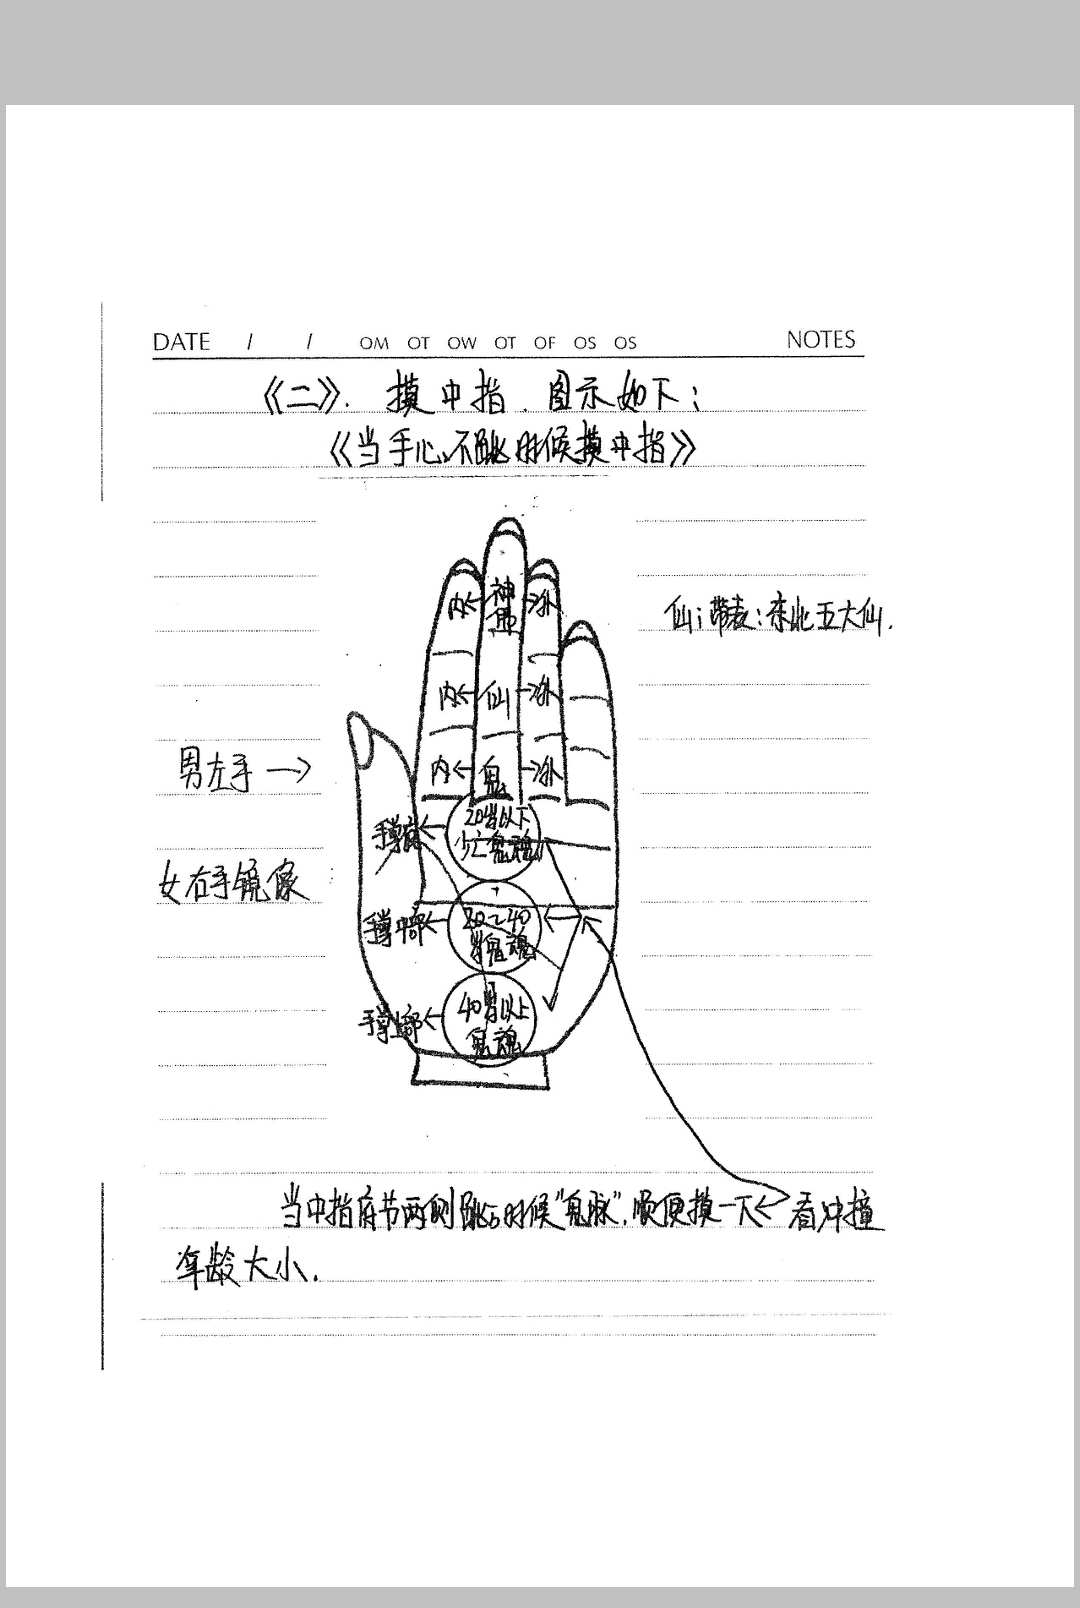 DATE / / OM OT OW OT OF OS OS NOTES
《二》. 摸中指. 图示如下:
《当手心不跳时候摸中指》
内← 神 →外
仙;带表:东北五大仙.
内← 仙 →外
男左手 →
内← 鬼 →外
20岁以下
少亡鬼魂
女右手镜像
20~40
岁鬼魂
40岁以上
鬼魂
当中指 节两侧跳的时候"鬼脉",顺便摸一下← 看冲撞
年龄大小.